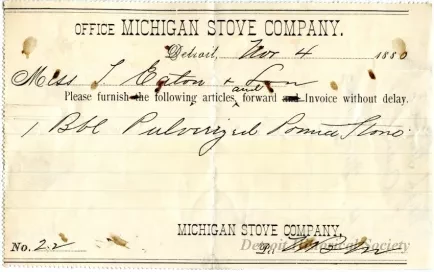 OFFICE MICHIGAN STOVE COMPANY.
Detroit, Nov 4 1880
Mess T Eaton + Son
Please furnish the following articles, and forward and Invoice without delay.
1 Bbl Pulverized Pomice Stone
MICHIGAN STOVE COMPANY.
No. 22 Per
Detroit Historical Society